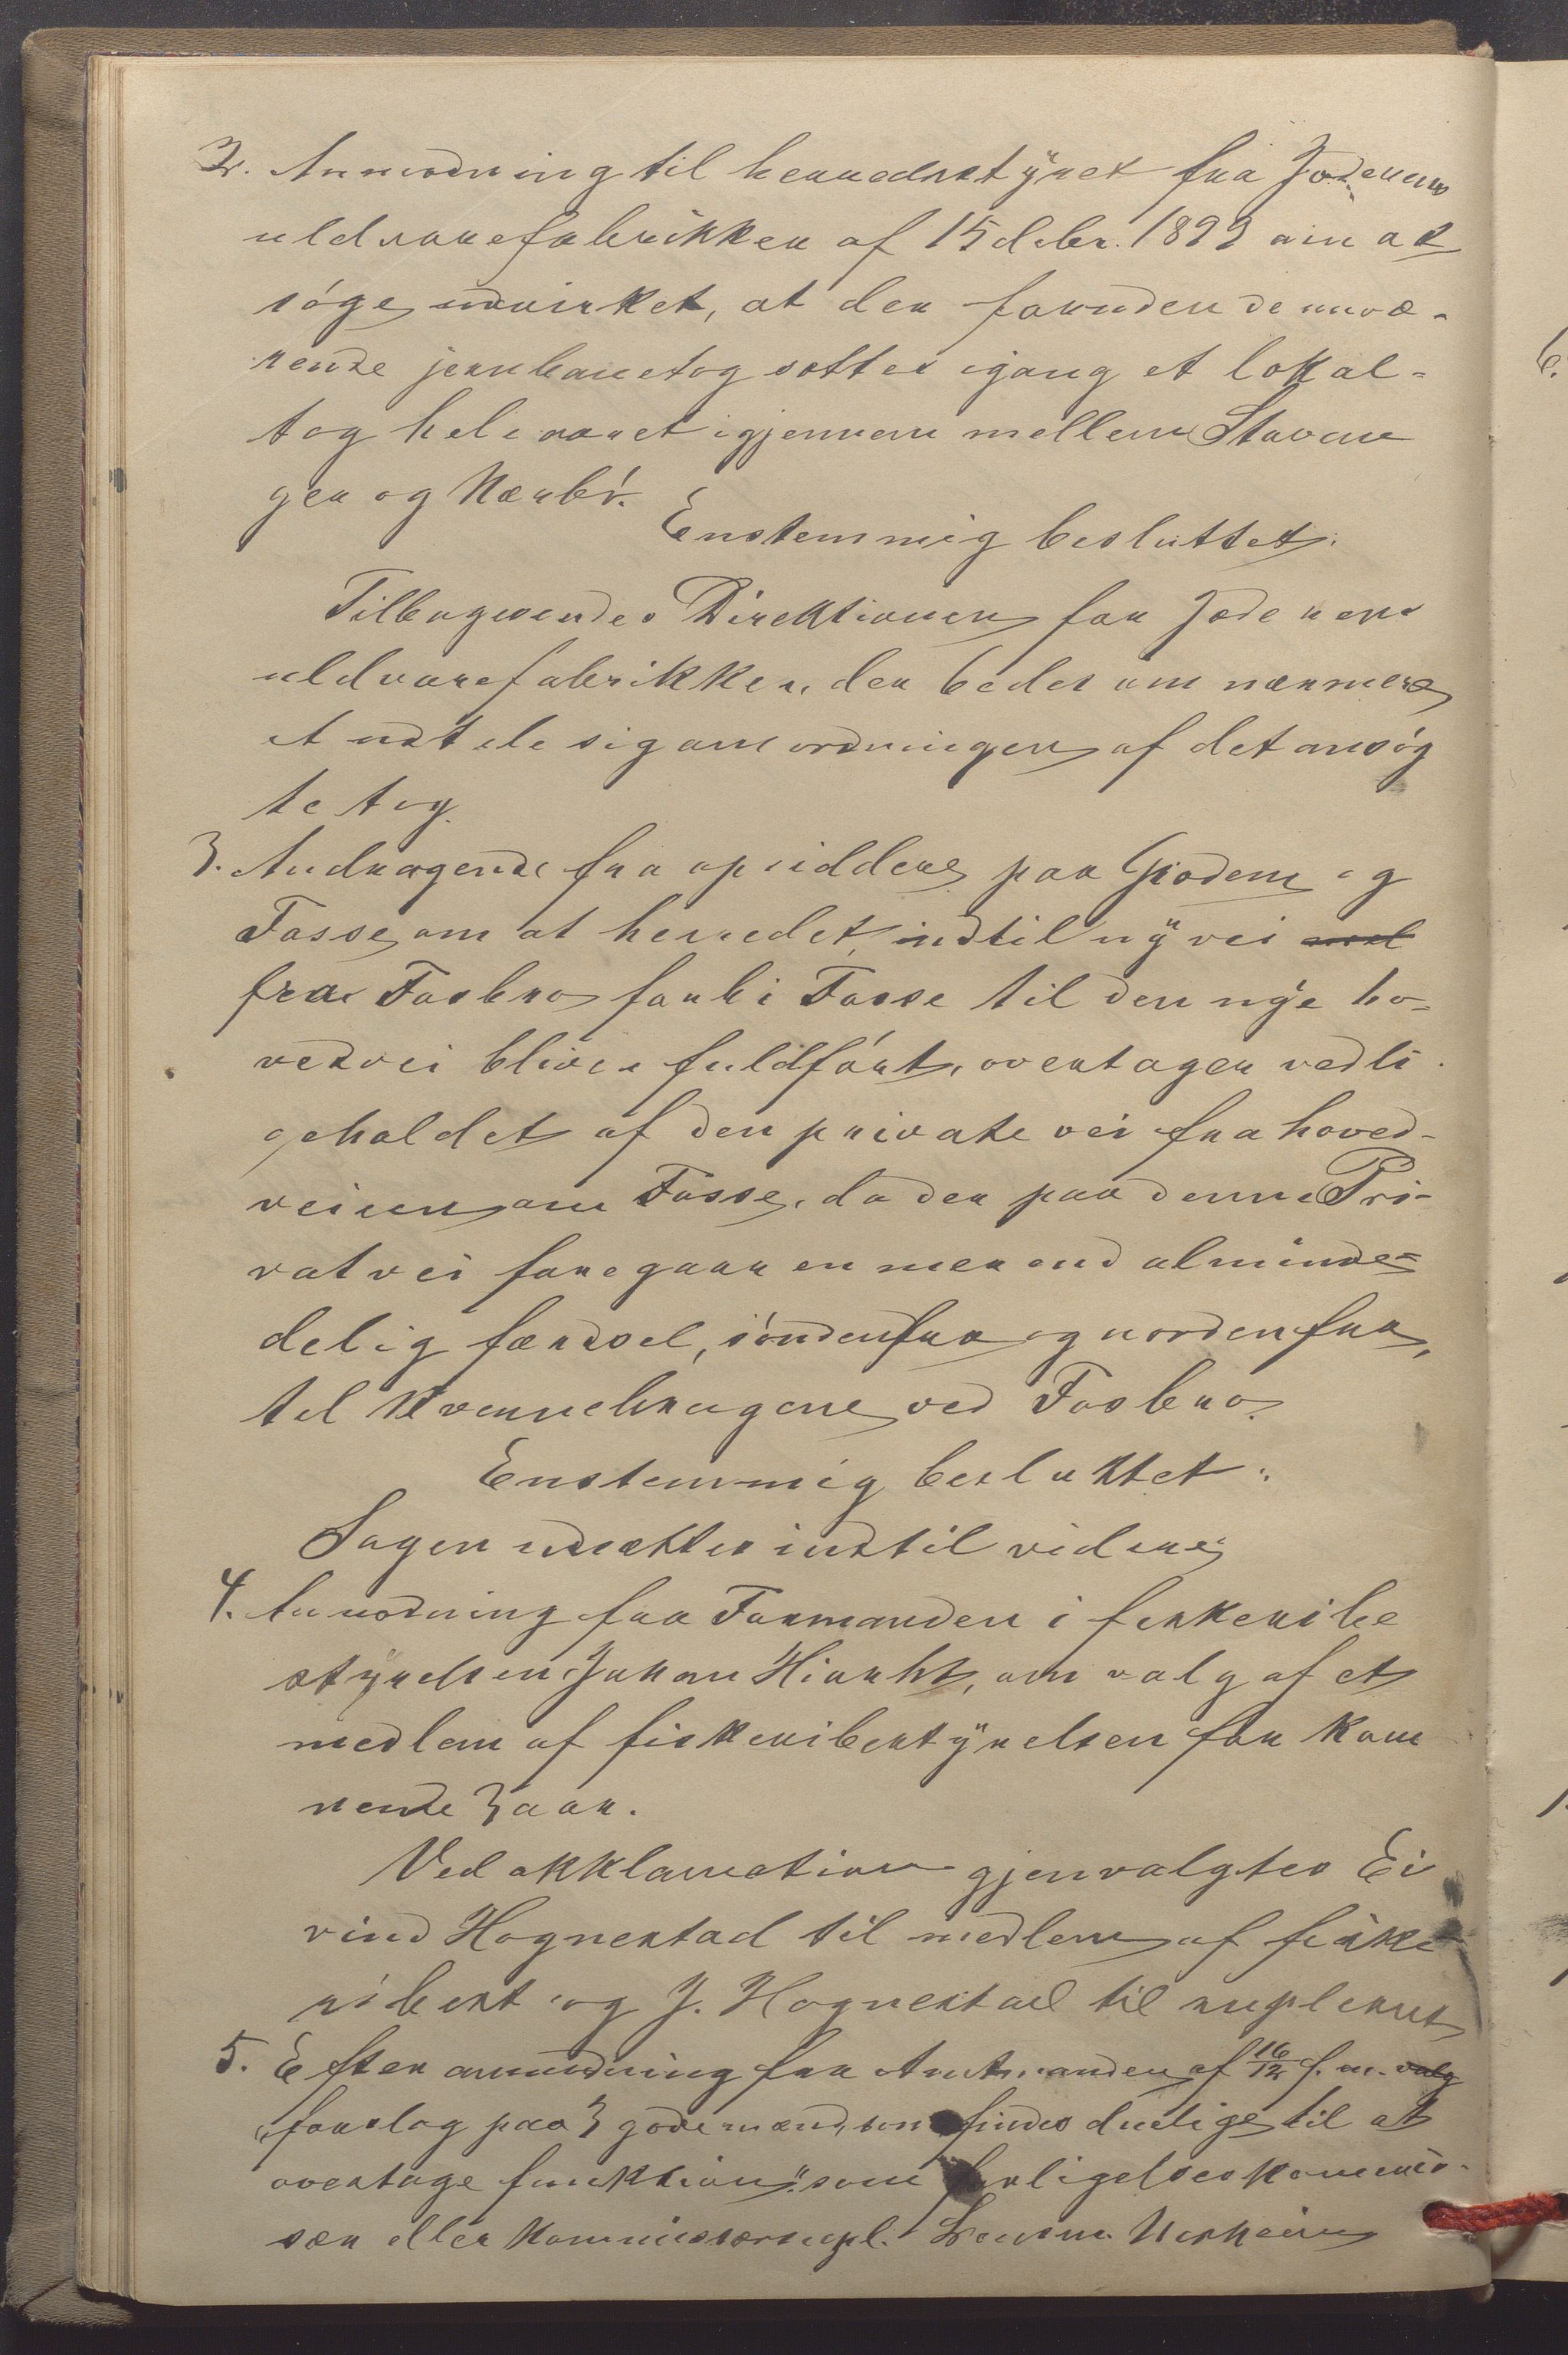 2. Anmodning til herredsstyret fra Jæderens
uldvarefabrikken af 15 debr. 1899 om at
søge udvirket, at der foruden de nuvæ-
rende jernbanetog sættes igang et lokal-
tog hele aaret igjennem mellem Stavan
ger og Nærbø.
Enstemmig besluttet:
Tilbagesendes Direktionen for Jæderens
uldvarefabrikken, der bedes om nærmere
at udtale sig om ordningen af det ansøg
te tog.
3. Andragende fra opsiddere paa Grødem og
Fosse, om at herredet, indtil ny vei
fra Fosbro forbi Fosse til den nye ho-
vedvei bliver fuldført, overtager vedli-
geholdet af den private vei fra hoved-
veien om Fosse, da der paa denne Pri-
vatvei foregaar en mer end alminde-
delig færdsel, søndenfra og nordenfra,
til Kvernebrugene ved Fosbro.
Enstemmig besluttet:
Sagen udsættes indtil videre
4. Anmodning fra Formanden i fiskeribe
styrelsen Johan Hiorth, om valg af et
medlem af fiskeribestyrelsen for kom
mende 3 aar.
Ved akklamation gjenvalgtes Ei
vind Hognestad til medlem af fiske
ribest. og J. Hognestad til supleant
5. Efter anmodning fra Amtmanden af 16/12 f. m. valg
forslag paa 3 gode mænd, som findes duelige til at
overtage funktion: som forligelseskommis-
sær eller kommissærsupl. Lensm. Norheim